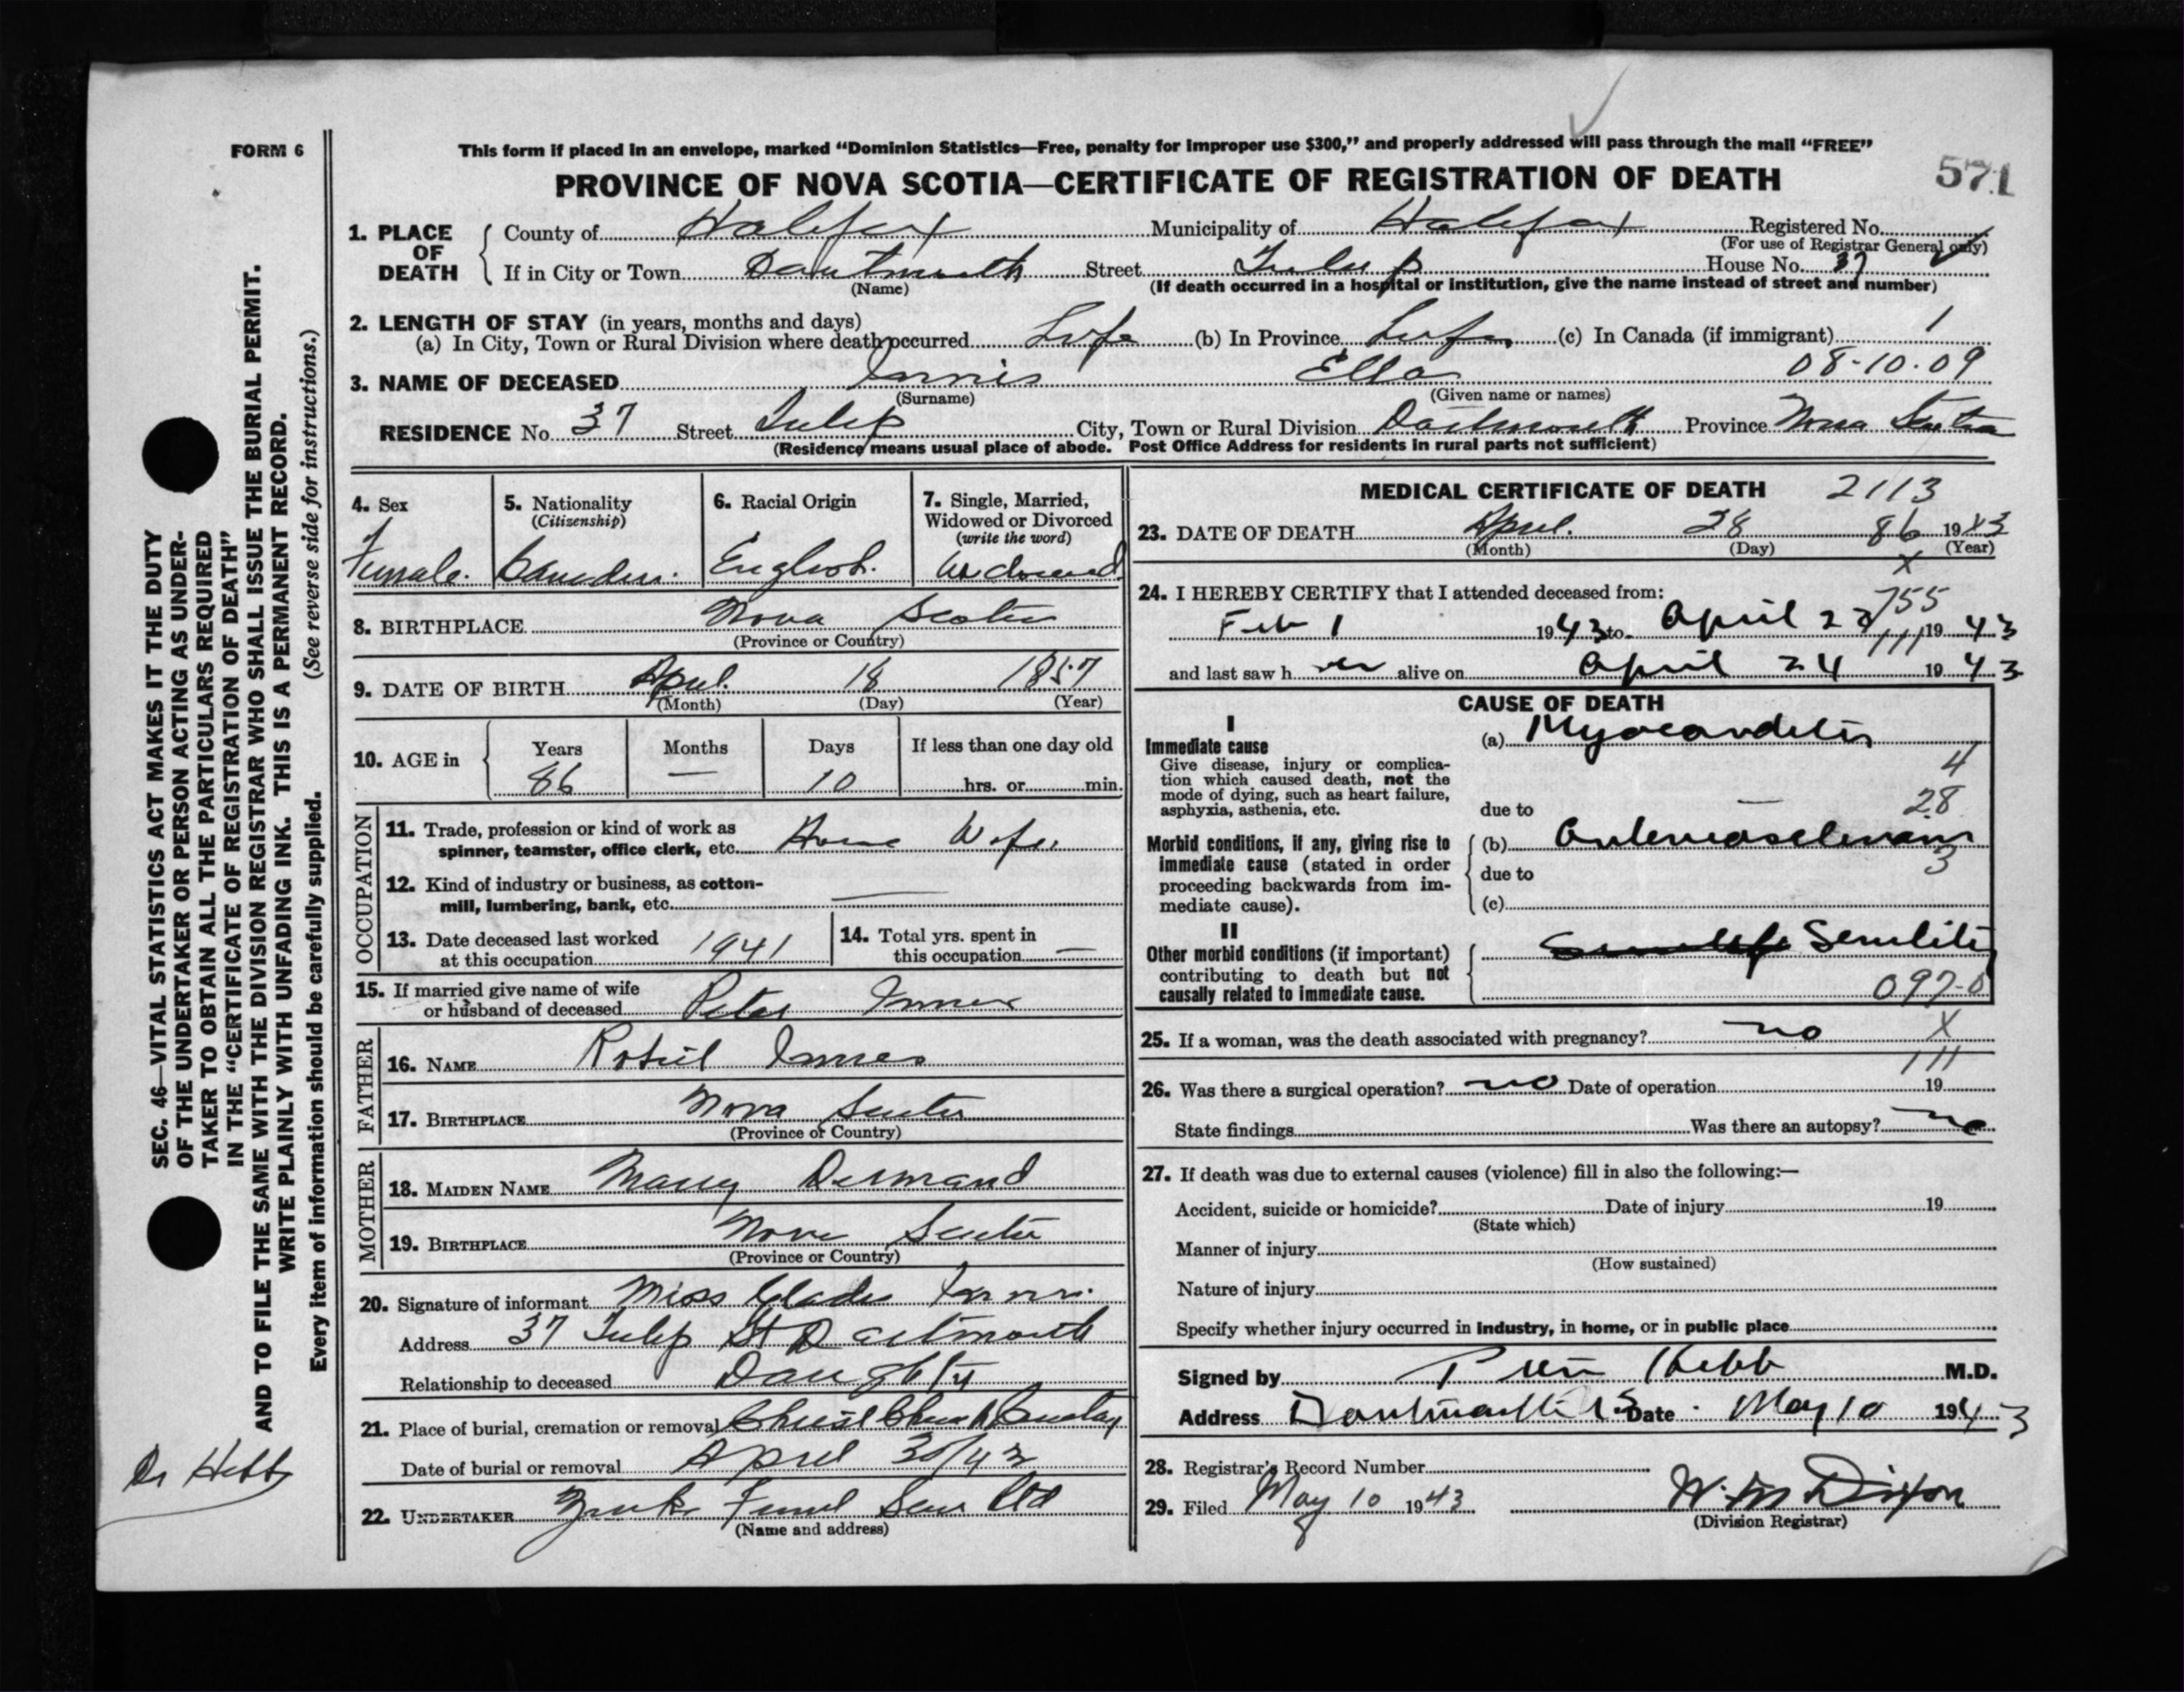 FORM 6
This form if placed in an envelope, marked “Dominion Statistics—Free, penalty for improper use $300,” and properly addressed will pass through the mail “FREE”
PROVINCE OF NOVA SCOTIA—CERTIFICATE OF REGISTRATION OF DEATH
571
1. PLACE OF DEATH
County of Halifax Municipality of Halifax Registered No.
(For use of Registrar General only)
If in City or Town Dartmouth Street Tulip House No. 37
(Name) (If death occurred in a hospital or institution, give the name instead of street and number)
2. LENGTH OF STAY (in years, months and days)
(a) In City, Town or Rural Division where death occurred Life (b) In Province Life (c) In Canada (if immigrant) 1
08-10-09
3. NAME OF DECEASED Innis Ella
(Surname) (Given name or names)
RESIDENCE No. 37 Street Tulip City, Town or Rural Division Dartmouth Province Nova Scotia
(Residence means usual place of abode. Post Office Address for residents in rural parts not sufficient)
4. Sex
Female.
5. Nationality
(Citizenship)
Canadian.
6. Racial Origin
English.
7. Single, Married,
Widowed or Divorced
(write the word)
Widowed
8. BIRTHPLACE Nova Scotia
(Province or Country)
9. DATE OF BIRTH April 18 1857
(Month) (Day) (Year)
10. AGE in
Years Months Days If less than one day old
86 — 10 hrs. or min.
OCCUPATION
11. Trade, profession or kind of work as
spinner, teamster, office clerk, etc. House Wife
12. Kind of industry or business, as cotton-
mill, lumbering, bank, etc. —
13. Date deceased last worked
at this occupation 1941
14. Total yrs. spent in
this occupation —
15. If married give name of wife
or husband of deceased Peter Innes
FATHER
16. NAME Robert Innes
17. BIRTHPLACE Nova Scotia
(Province or Country)
MOTHER
18. MAIDEN NAME Mary
19. BIRTHPLACE Nova Scotia
(Province or Country)
20. Signature of informant Miss Gladis Innis
Address 37 Tulip St Dartmouth
Relationship to deceased Daughter
21. Place of burial, cremation or removal Christ Church
Date of burial or removal April 30/43
22. UNDERTAKER Ltd
(Name and address)
MEDICAL CERTIFICATE OF DEATH 2113
23. DATE OF DEATH April. 28 86 1943
(Month) (Day) (Year)
X
24. I HEREBY CERTIFY that I attended deceased from:
755
Feb 1 1943 to April 1943
111
and last saw h er alive on April 24 1943
CAUSE OF DEATH
I
Immediate cause
Give disease, injury or complica-
tion which caused death, not the
mode of dying, such as heart failure,
asphyxia, asthenia, etc.
(a) Myocarditis
4
due to —
28
Morbid conditions, if any, giving rise to
immediate cause (stated in order
proceeding backwards from im-
mediate cause).
(b) Arteriosclerosis
3
due to
(c)
II
Other morbid conditions (if important)
contributing to death but not
causally related to immediate cause.
Senility
097-0
25. If a woman, was the death associated with pregnancy? no X
111
26. Was there a surgical operation? no Date of operation 19
State findings Was there an autopsy? no
27. If death was due to external causes (violence) fill in also the following:—
Accident, suicide or homicide? Date of injury 19
(State which)
Manner of injury
(How sustained)
Nature of injury
Specify whether injury occurred in industry, in home, or in public place
Signed by Hebb M.D.
Address Dartmouth Date May 10 1943
28. Registrar's Record Number
29. Filed May 10 1943 Dixon
(Division Registrar)
SEC. 46—VITAL STATISTICS ACT MAKES IT THE DUTY
OF THE UNDERTAKER OR PERSON ACTING AS UNDER-
TAKER TO OBTAIN ALL THE PARTICULARS REQUIRED
IN THE “CERTIFICATE OF REGISTRATION OF DEATH”
AND TO FILE THE SAME WITH THE DIVISION REGISTRAR WHO SHALL ISSUE THE BURIAL PERMIT.
WRITE PLAINLY WITH UNFADING INK. THIS IS A PERMANENT RECORD.
Every item of information should be carefully supplied. (See reverse side for instructions.)
Dr Hebb